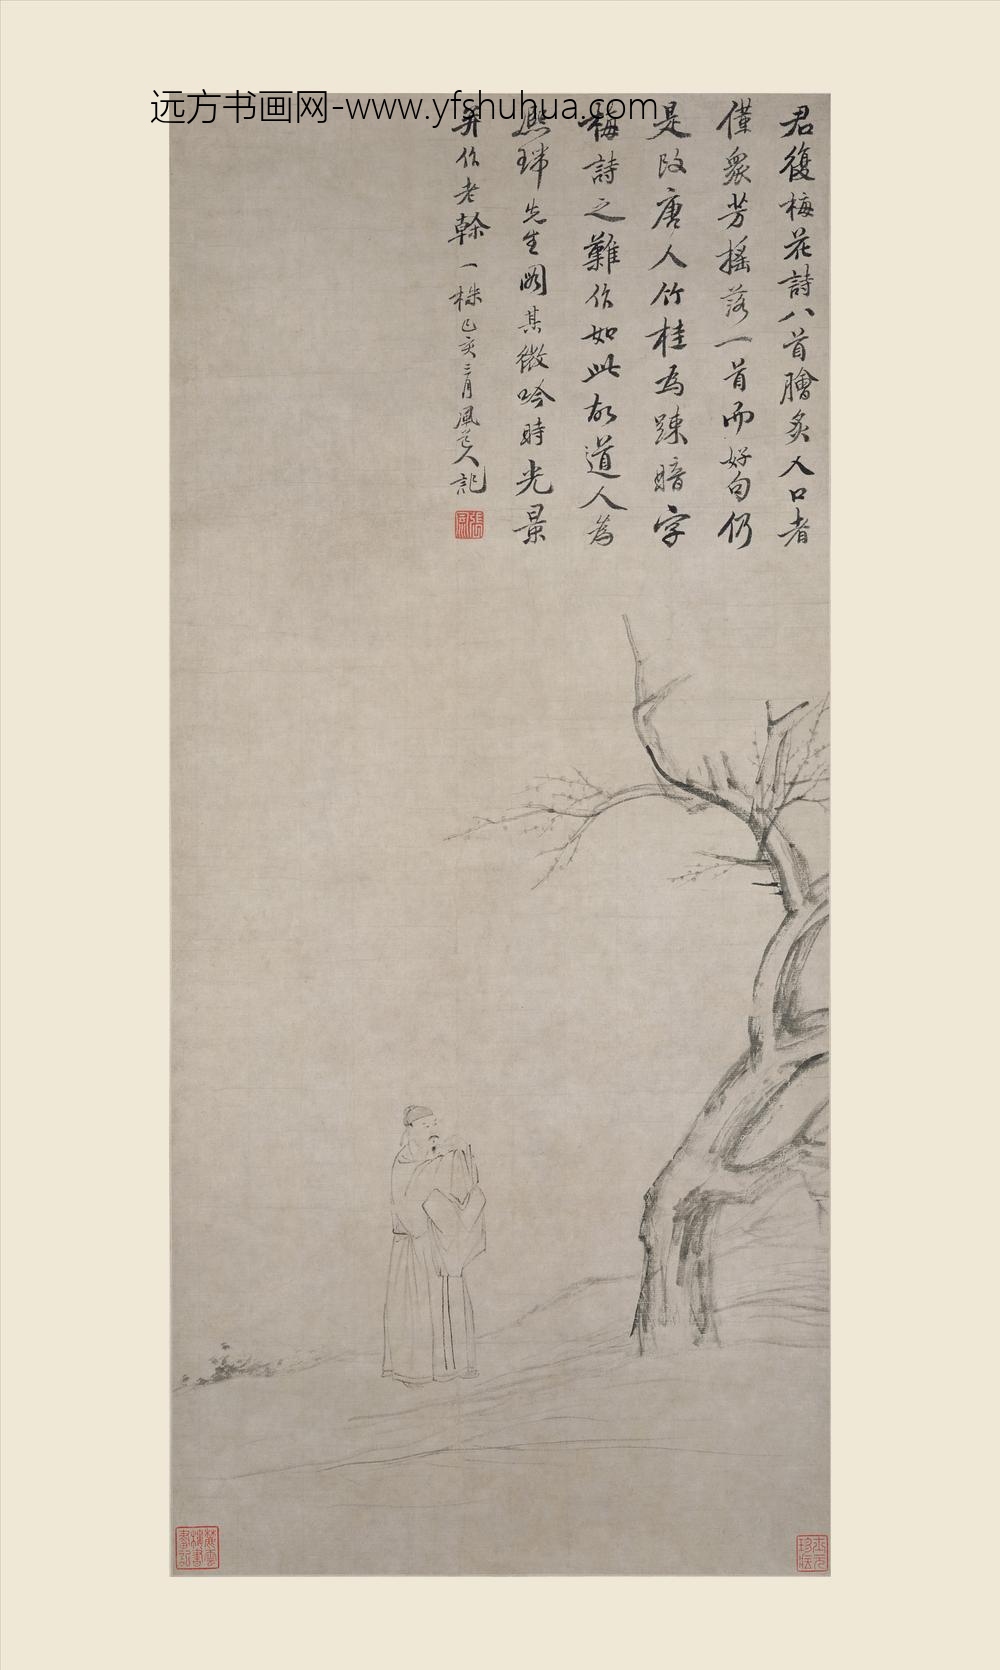 远方书画网-www.yfshuhua.com
君復梅花詩八首膾炙人口者
僅眾芳搖落一首而好句仍
是改唐人竹桂為踈暗字
梅詩之難作如此故道人為
熙瑞先生圖其微吟時光景
并作老榦一株乙亥三月風道人記
張風